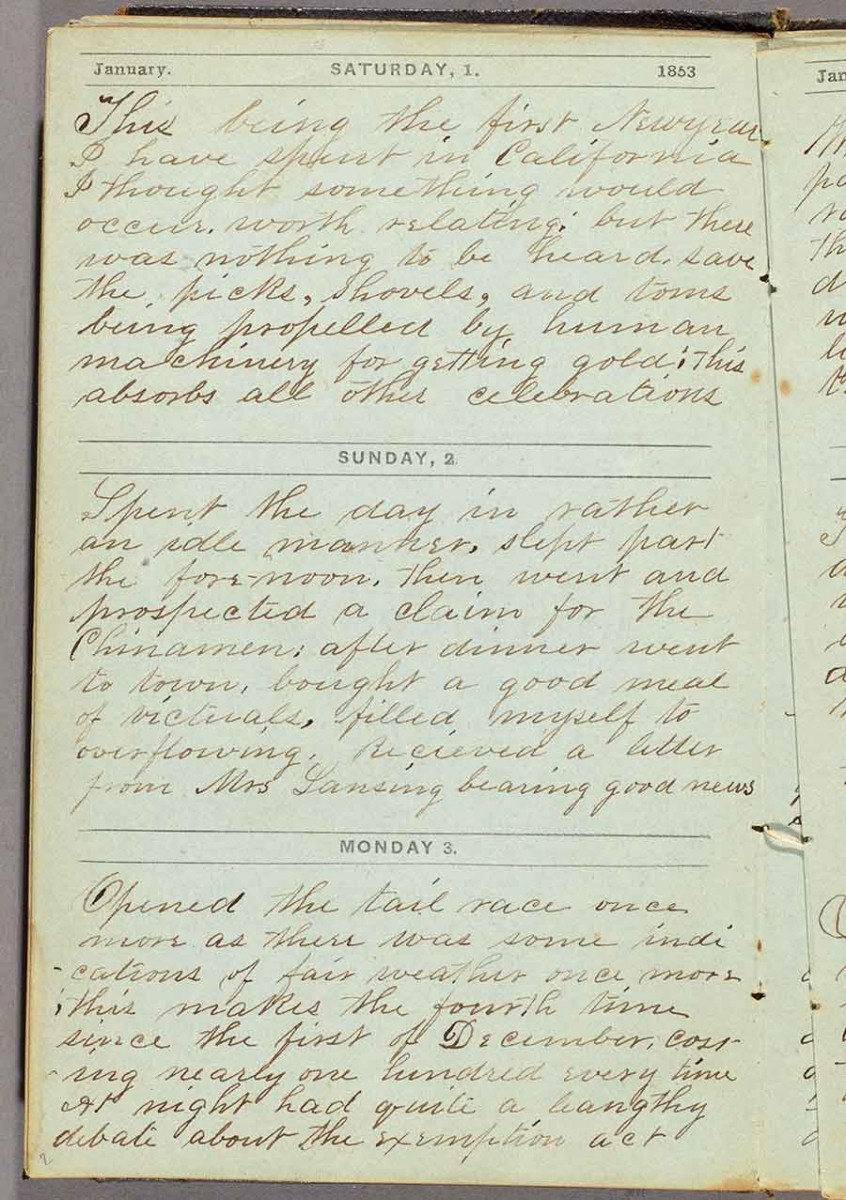 January. SATURDAY, 1. 1853
This being the first Newyear
I have spent in California
I thought something would
occur. worth relating; but there
was nothing to be heard. save
the picks, shovels, and toms
being propelled by human
machinery for getting gold; this
absorbs all other celebrations
SUNDAY, 2
Spent the day in rather
an idle manner. slept part
the fore-noon. then went and
prospected a claim for the
Chinamen; after dinner went
to town. bought a good meal
of victuals, filled myself to
overflowing. Recieved a letter
from Mrs Lansing bearing good news
MONDAY 3.
Opened the tail race once
more as there was some indi
-cations of fair weather once more
; this makes the fourth time
since the first of December, cost
-ing nearly one hundred every time
At night had quite a leangthy
debate about the exemption act
Jan